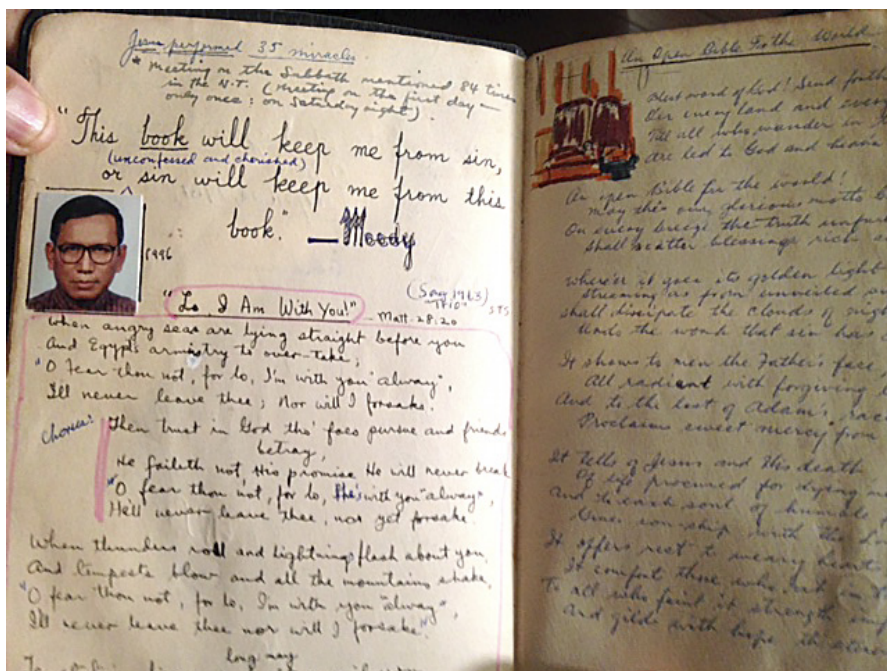 Jesus performed 35 miracles
* Meeting on the Sabbath mentioned 84 times
in the N.T. (Meeting on the first day —
only once : on Saturday night).
"This book will keep me from sin,
(unconfessed and cherished)
or sin will keep me from this
book." — Moody
1996
(Sang 1963)
"Lo, I Am With You!" Matt. 28:20
When angry seas are lying straight before you
And Egypt's armistry to over-take;
"O fear thou not, for lo, I'm with you "alway",
I'll never leave thee; Nor will I forsake."
Chorus: Then trust in God tho' foes pursue and friends
betray,
He faileth not, His promise He will never break
"O fear thou not, for lo, He's with you "alway",
He'll never leave thee, nor yet forsake.
When thunders roll and lightning flash about you,
And tempests blow and all the mountains shake,
"O fear thou not, for lo, I'm with you "alway",
I'll never leave thee nor will I forsake."
long may
An Open Bible For the World
word of God! Send forth
every land and
Till all who wander in
Are led to God and heaven
An open Bible for the world!
May this our glorious motto
On every breeze the truth
Shall scatter blessings rich
Where'er it goes its golden light
Streaming as from unveiled
Shall dissipate the clouds of
Undo the work that sin has
It shows to men the Father's face
All radiant with forgiving
And to the lost of Adam's race
Proclaims sweet mercy from
It tells of Jesus and His death
Of life procured for dying
And to each soul of humble
with the
It offers rest to weary hearts
It comforts those who
To all who faint it strength
And gilds with hope the